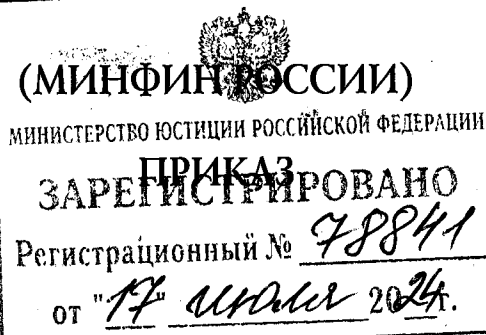 (МИНФИН РОССИИ)
МИНИСТЕРСТВО ЮСТИЦИИ РОССИЙСКОЙ ФЕДЕРАЦИИ
ПРИКАЗ
ЗАРЕГИСТРИРОВАНО
Регистрационный № 78841
от "17" июля 2024г.